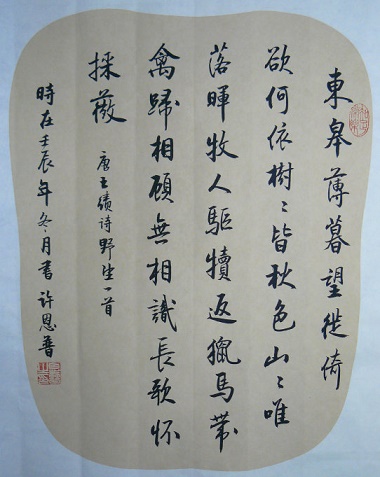 東皋薄暮望徙倚
欲何依樹〻皆秋色山〻唯
落暉牧人驅犢返獵馬帶
禽歸相顧無相識長歌怀
採薇
唐王绩诗野望一首
時在壬辰年冬月書 许恩普